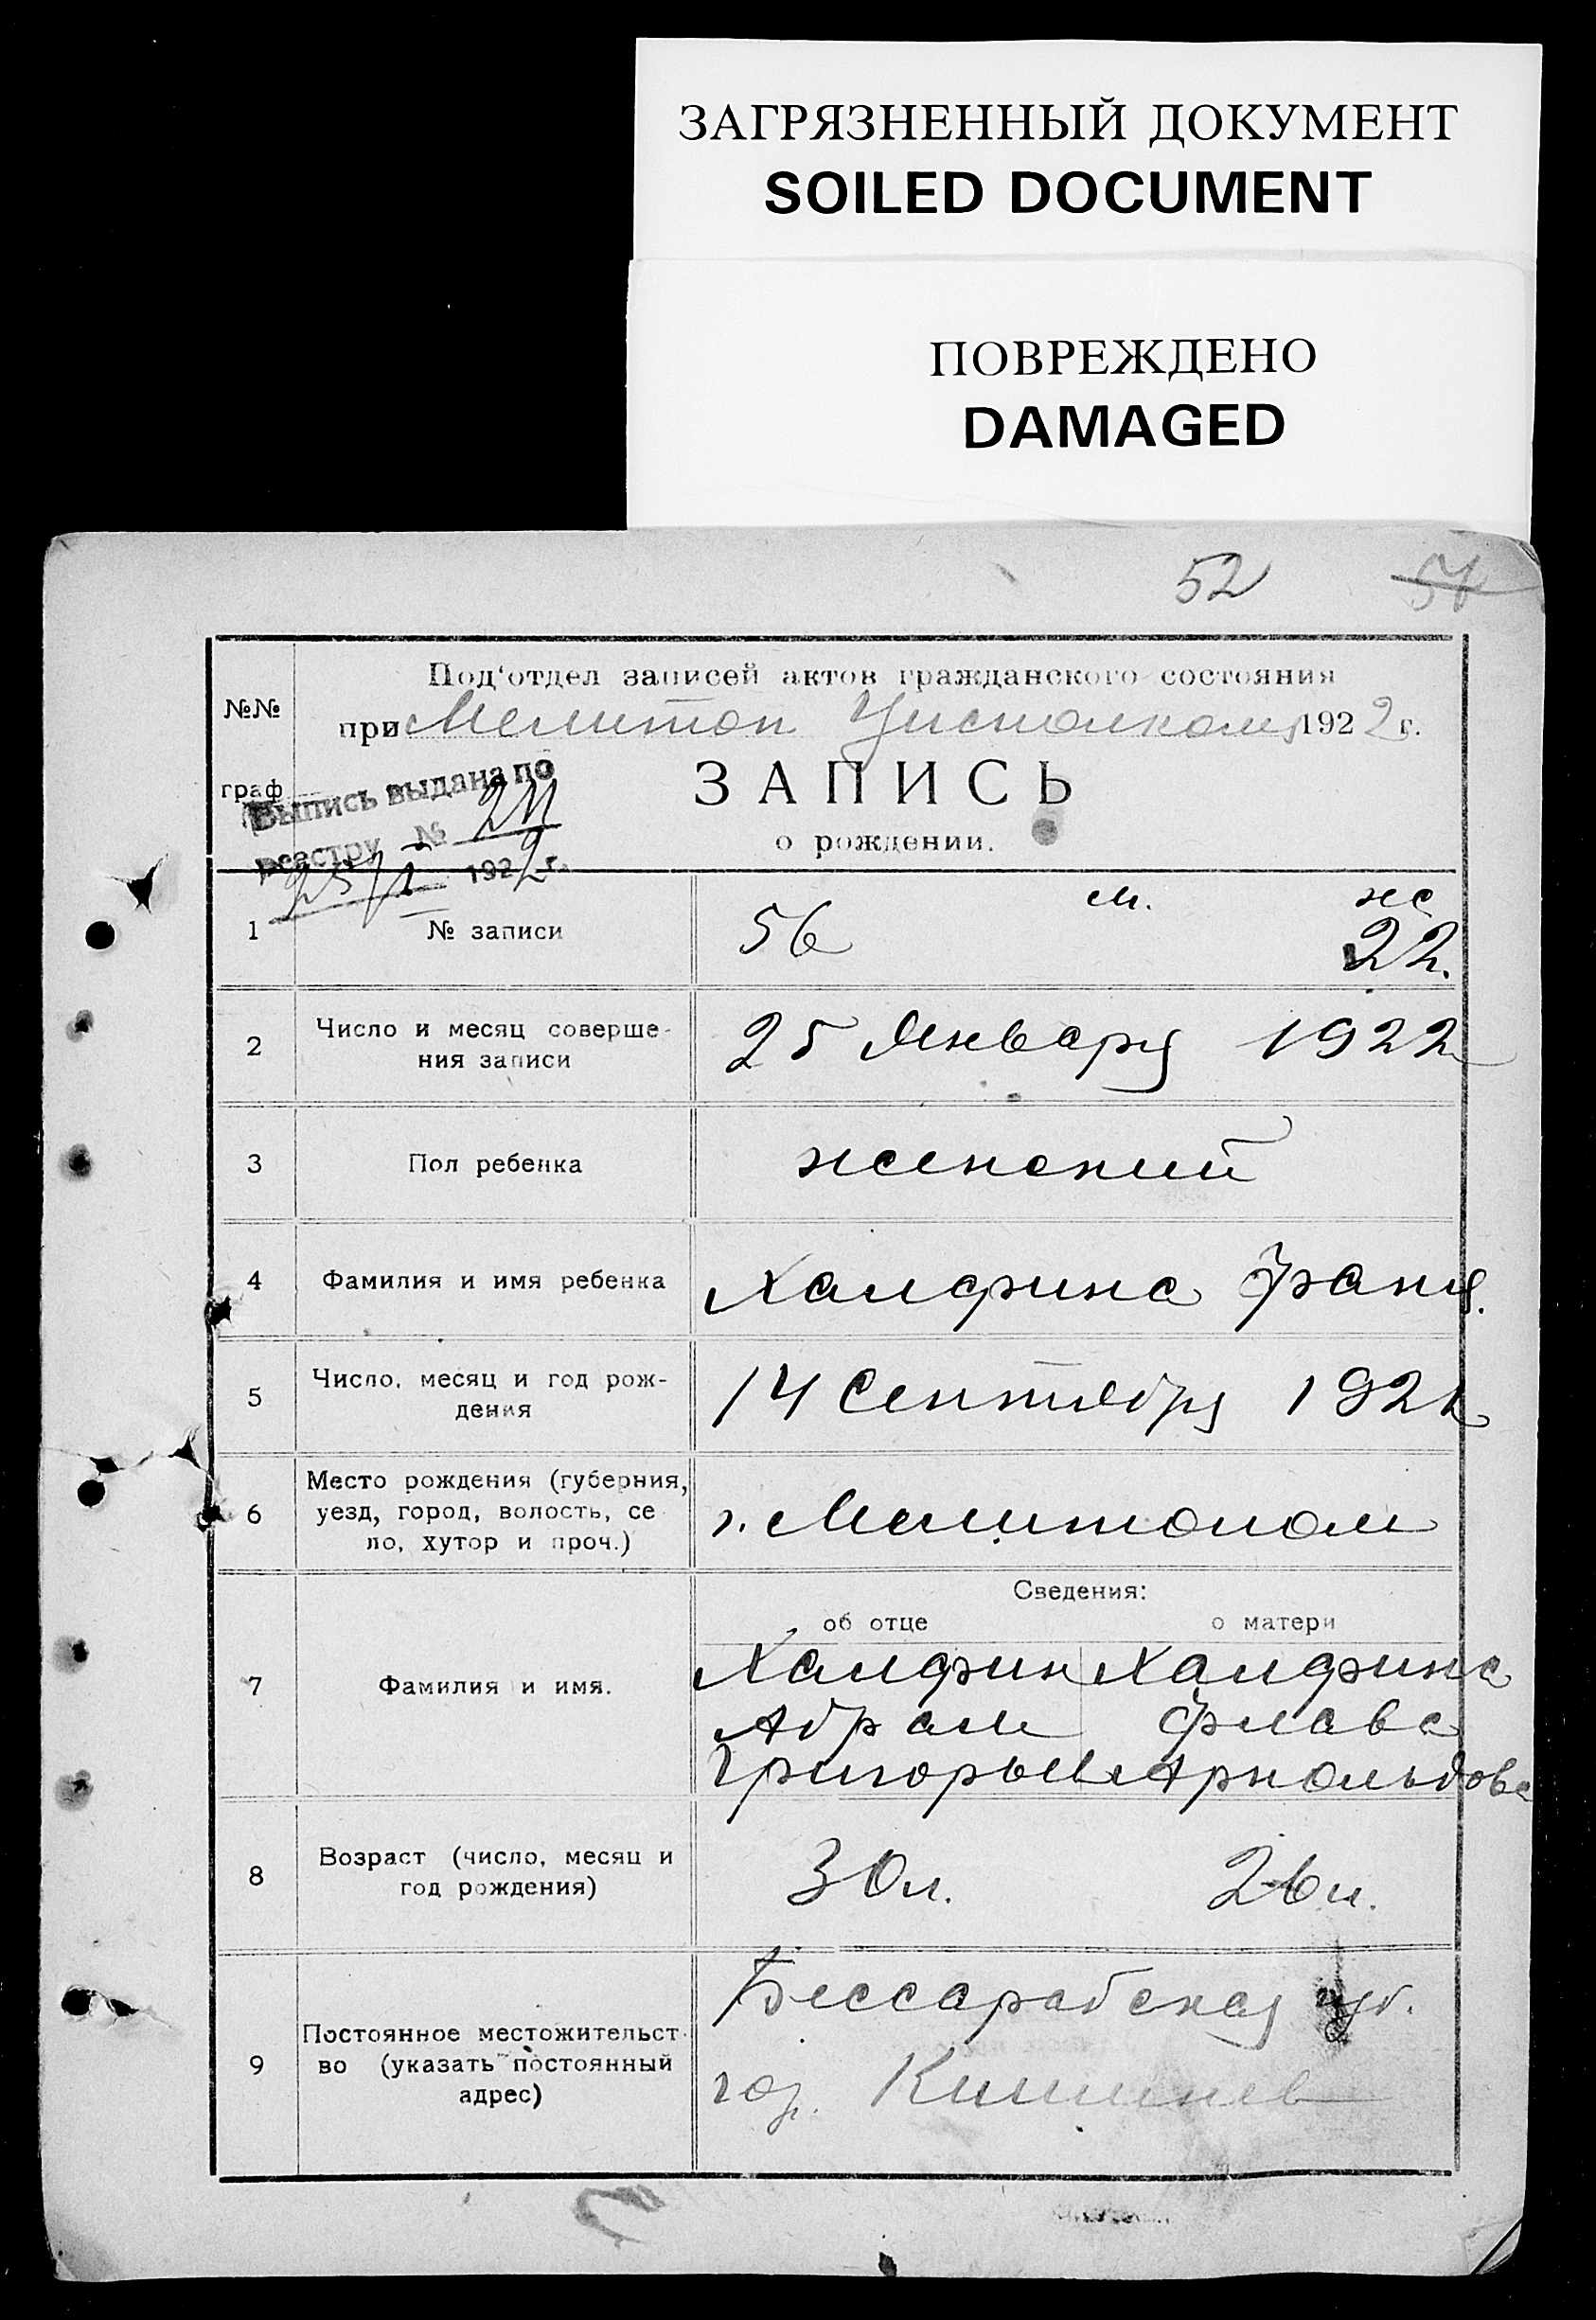 ЗАГРЯЗНЕННЫЙ ДОКУМЕНТ
SOILED DOCUMENT
ПОВРЕЖДЕНО
DAMAGED
52 54
№№
граф
Под'отдел записей актов гражданского состояния
при Мелитоп Уисполкома 1922 г.
Выпись выдана по
реестру № 211
25/1 1922 г.
ЗАПИСЬ
о рождении.
м. же
1 № записи 56 22.
2 Число и месяц соверше-
ния записи
25 Января 1922
3 Пол ребенка женский
4 Фамилия и имя ребенка Халфина Фаня.
5 Число, месяц и год рож-
дения
14 Сентября 1921
6 Место рождения (губерния,
уезд, город, волость, се
ло, хутор и проч.)
г. Мелитополь
Сведения:
об отце о матери
7 Фамилия и имя.
Халфин Халфина
Абрам Флава
Григорьев Арнольдова
8 Возраст (число, месяц и
год рождения)
30 л. 26 л.
9 Постоянное местожительст
во (указать постоянный
адрес)
Бессарабская губ.
гор. Кишинев